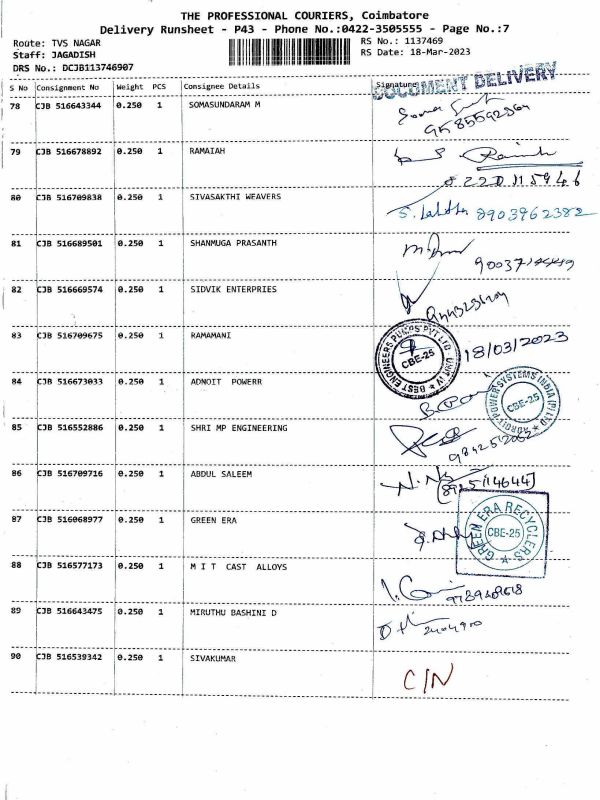 THE PROFESSIONAL COURIERS, Coimbatore
Delivery Runsheet - P43 - Phone No.:0422-3505555 - Page No.:7
Route: TVS NAGAR
RS No.: 1137469
Staff: JAGADISH
RS Date: 18-Mar-2023
DRS No.: DCJB113746907
S No Consignment No Weight PCS Consignee Details Signature
DOCUMENT DELIVERY
78 CJB 516643344 0.250 1 SOMASUNDARAM M
79 CJB 516678892 0.250 1 RAMAIAH
80 CJB 516709838 0.250 1 SIVASAKTHI WEAVERS S. Lalitha 8903962382
81 CJB 516689501 0.250 1 SHANMUGA PRASANTH
82 CJB 516669574 0.250 1 SIDVIK ENTERPRIES
83 CJB 516709675 0.250 1 RAMAMANI 18/03/2023
BEST ENGINEERS PUMPS PVT LTD CBE-25
84 CJB 516673033 0.250 1 ADNOIT POWERR
ADROIT POWER SYSTEMS INDIA (P) LTD CBE-25
85 CJB 516552886 0.250 1 SHRI MP ENGINEERING
86 CJB 516709716 0.250 1 ABDUL SALEEM
87 CJB 516068977 0.250 1 GREEN ERA
GREEN ERA RECYCLERS CBE-25
88 CJB 516577173 0.250 1 M I T CAST ALLOYS
89 CJB 516643475 0.250 1 MIRUTHU BASHINI D
90 CJB 516539342 0.250 1 SIVAKUMAR C/N